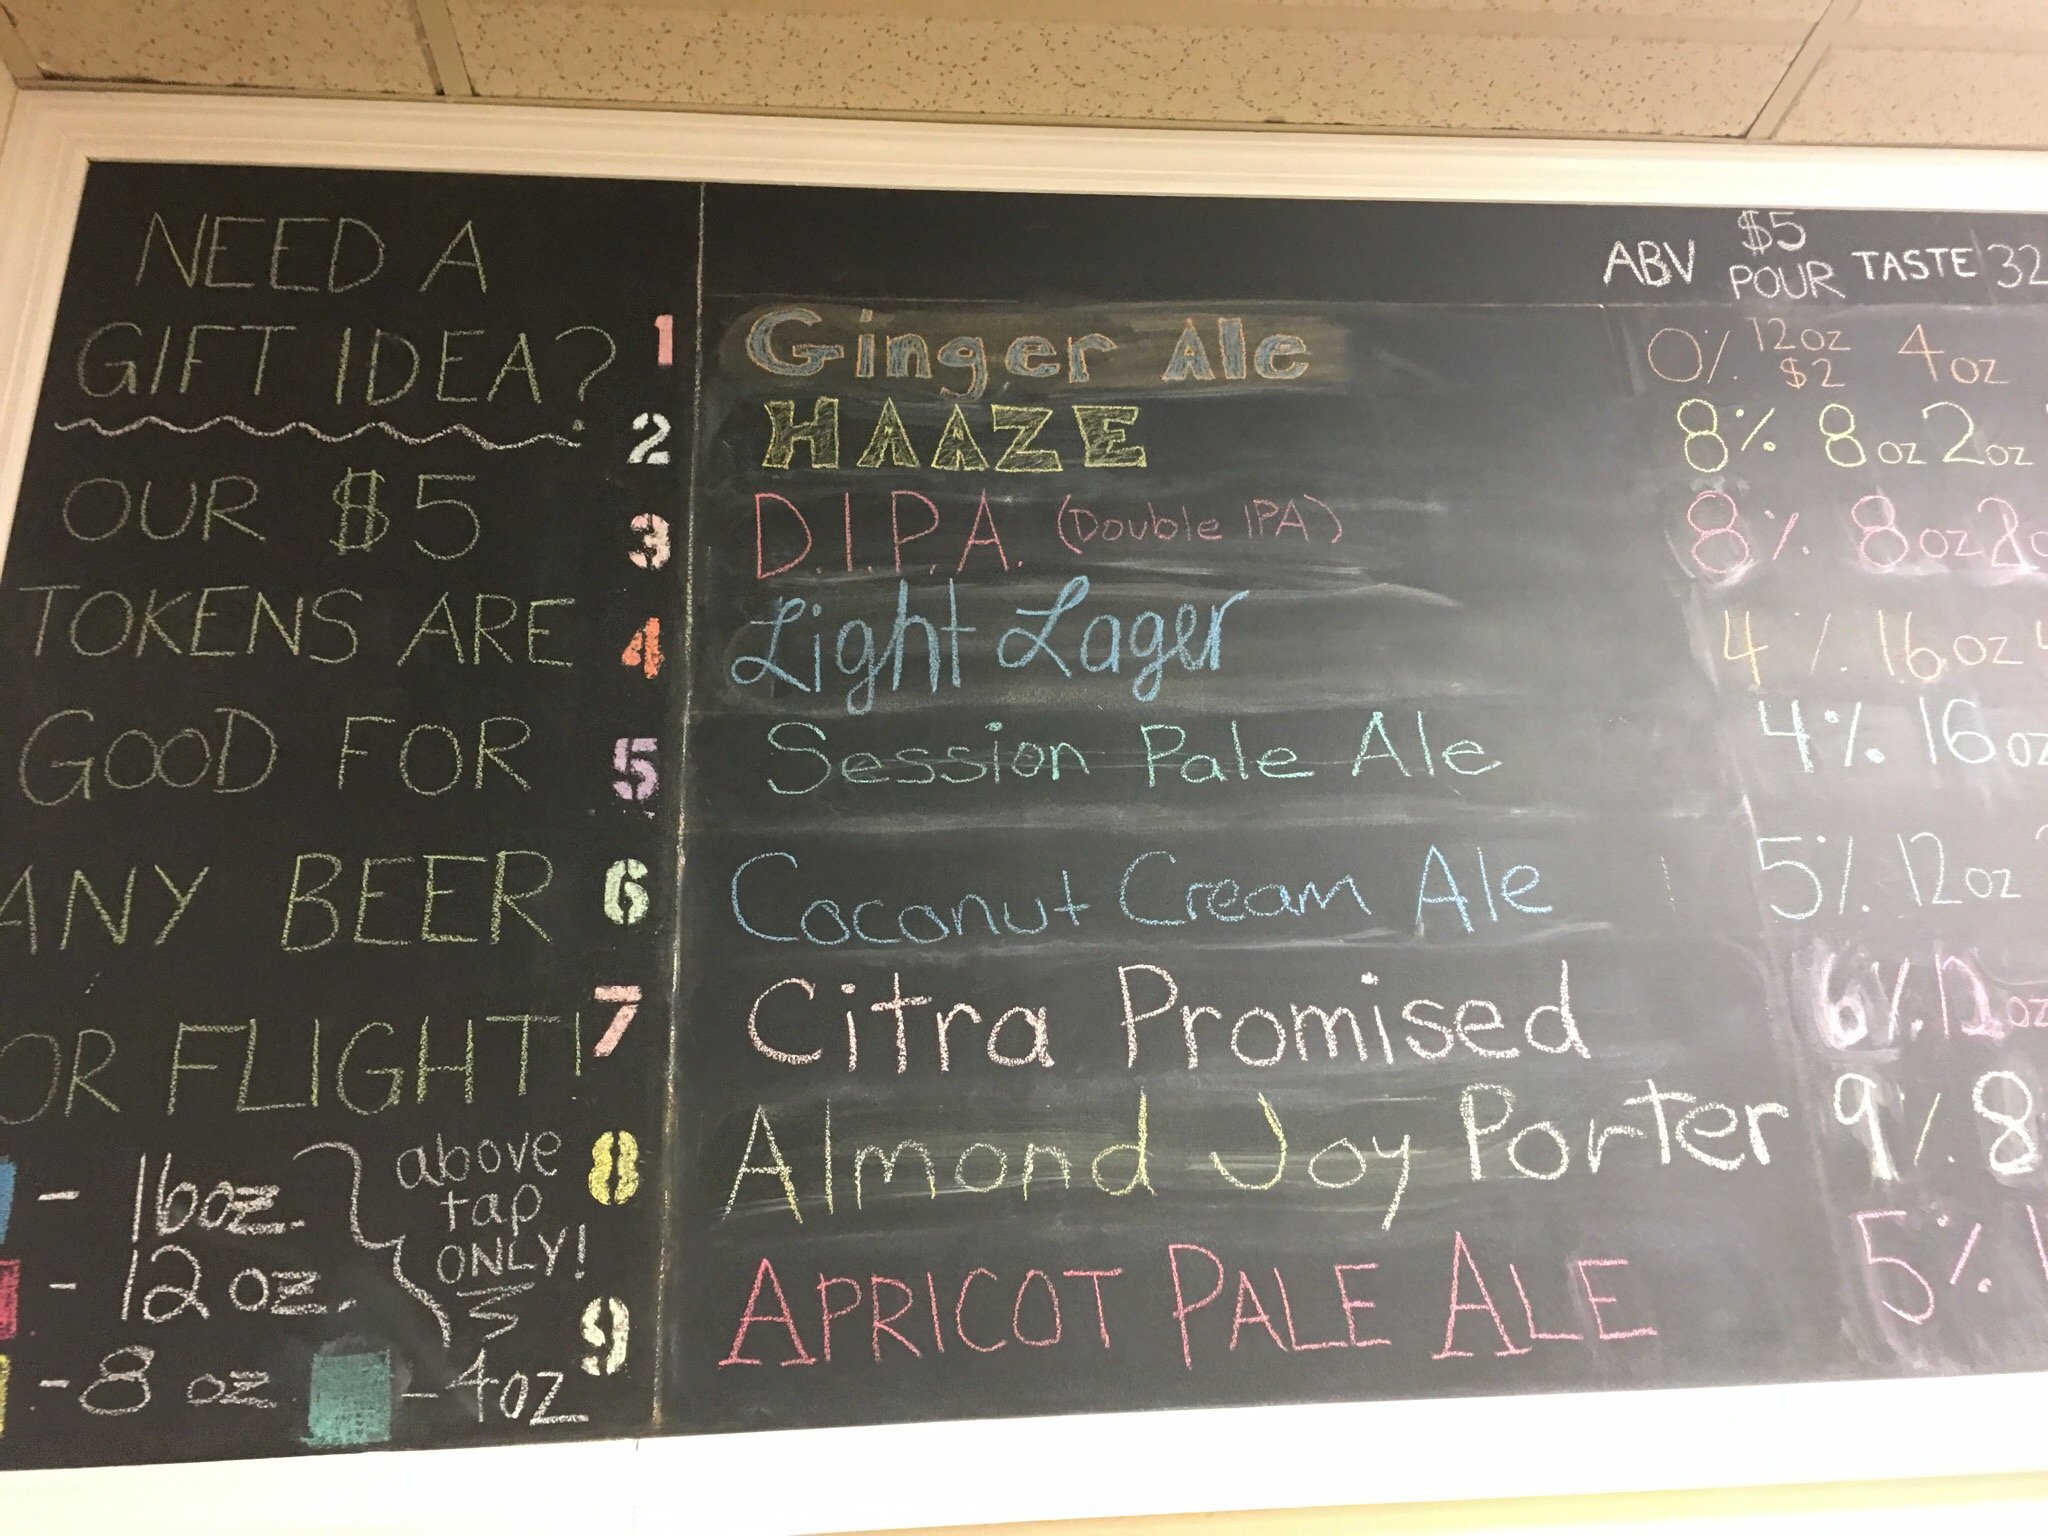 NEED A
GIFT IDEA?
OUR $5
TOKENS ARE
GOOD FOR
ANY BEER
OR FLIGHT!
- 16oz.
- 12 oz.
- 8 oz.
above
tap
ONLY!
- 4oz
ABV $5 POUR TASTE 32
1 Ginger Ale 0% 12oz $2 4oz
2 HAAZE 8% 8oz 2oz
3 D.I.P.A. (Double IPA) 8% 8oz
4 Light Lager 4% 16oz
5 Session Pale Ale 4% 16oz
6 Coconut Cream Ale 5% 12oz
7 Citra Promised 6% 12oz
8 Almond Joy Porter 9% 8
9 APRICOT PALE ALE 5%